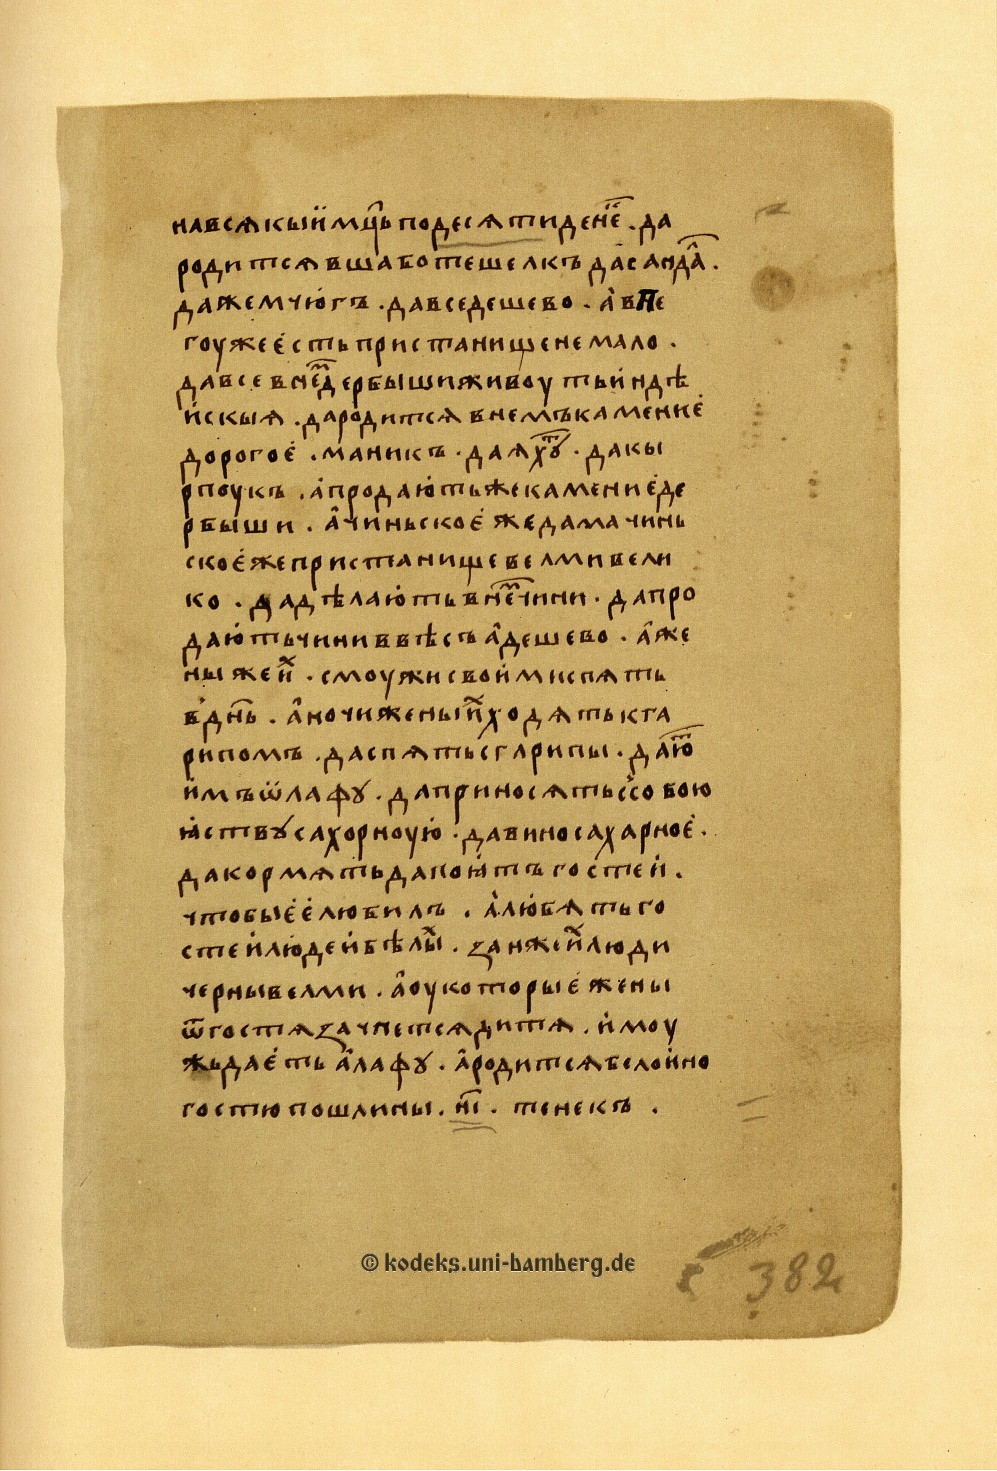 на всякыи мц҃ь по десяти дене҃. да
родится в шаботе шелкъ да санда҃.
да жемчюгъ. да все дешево. а в пе
гоу же есть пристанище немало.
да все в не҃м дербыши живоуть индѣ
искыя. да родится в немъ камение
дорогое. маникъ. да яхут. да кы
рпоукъ. а продають же камение де
рбыши. а чиньское же да мачинь
ское же пристанище велми вели
ко. да дѣлають в не҃м чини. да про
дають чини в вѣсъ а дешево. а же
ны же их. с моужи своими спять
в дн҃ь. а ночи жены их ходять к га
рипомъ. да спять с гарипы. да ют
имъ ѿлафу. да приносять с собою
яству сахорноую. да вино сахарное.
да кормять да поятъ гостеи.
чтобы ее любилъ. а любять го
стеи людеи бѣлых. занже их люди
черны велми. а оу которые жены
ѿ гостя зачнется дитя. и моу
жь даеть алафу. а родится бело ино
гостю пошлины. н҃і. тенекъ.
© kodeks.uni-bamberg.de
382